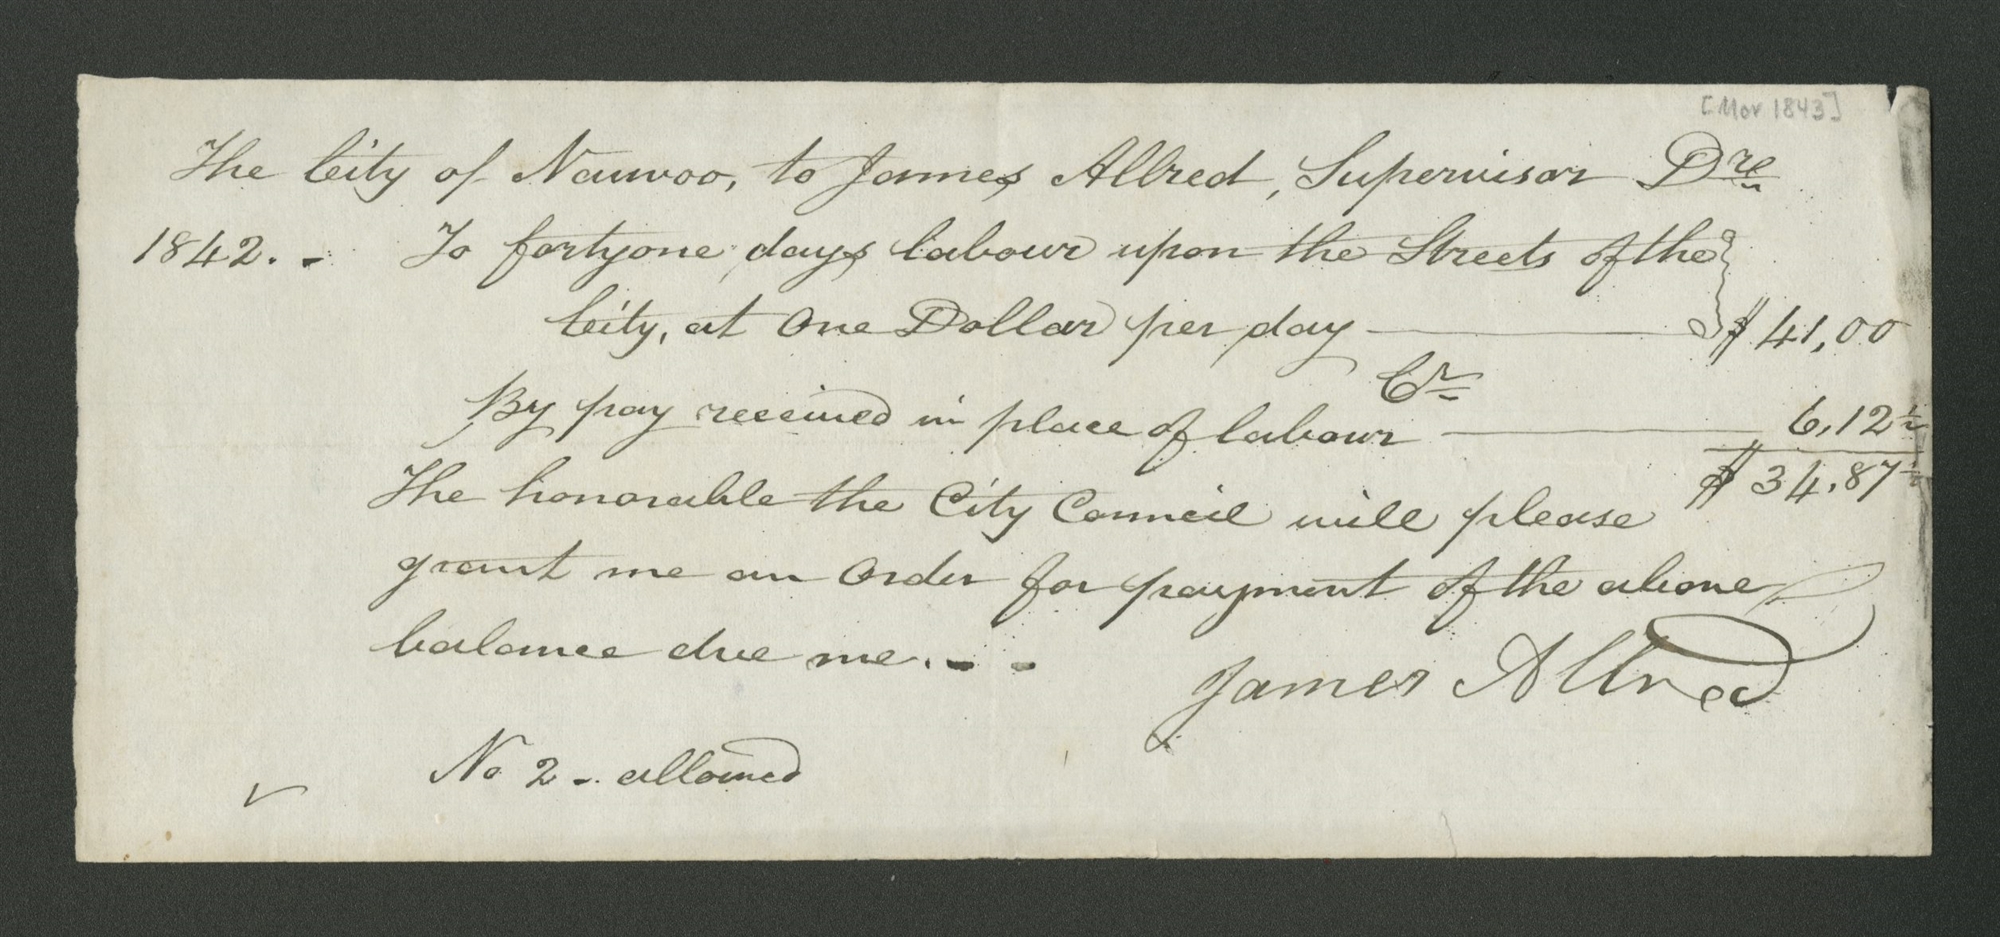 [Mar 1843]
The City of Nauvoo, to James Allred, Supervisor Dre
1842. - To fortyone days labour upon the Streets of the
City, at One Dollar per day $41,00
Cr
By pay received in place of labour 6,12½
$34,87½
The honorable the City Council will please
grant me an order for payment of the above
balance due me. - -
James Allred
No 2 - allowed